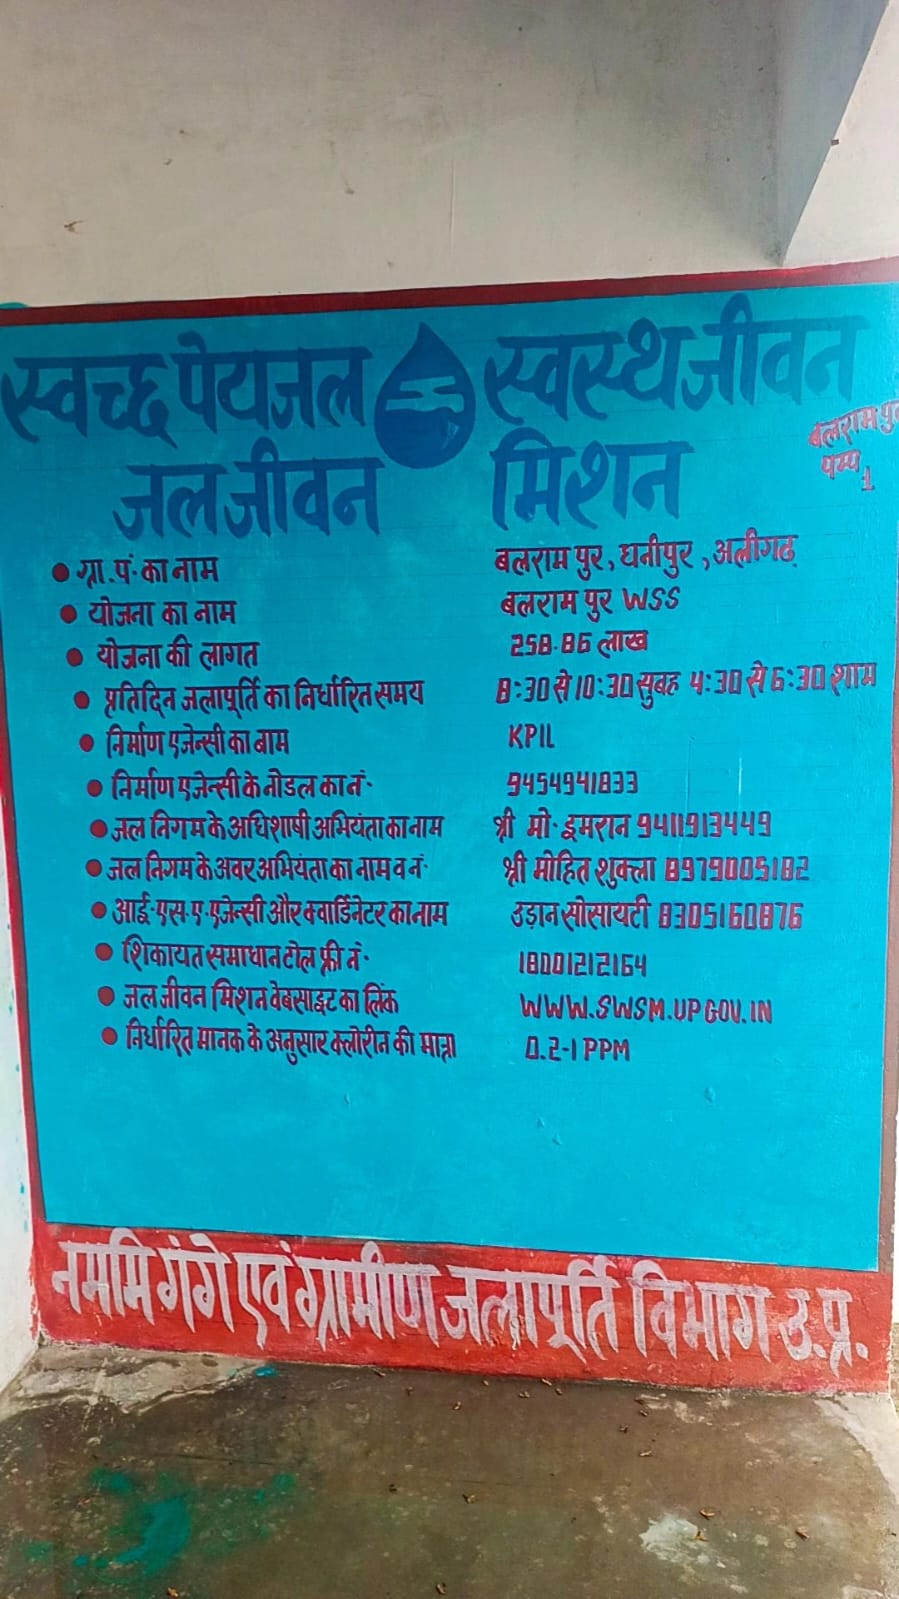 स्वच्छ पेयजल स्वस्थ जीवन
जल जीवन मिशन
बलराम पुर
पम्प 1
• ग्रा. पं. का नाम बलराम पुर, धनीपुर, अलीगढ़
• योजना का नाम बलराम पुर WSS
• योजना की लागत 258.86 लाख
• प्रतिदिन जलापूर्ति का निर्धारित समय 8:30 से 10:30 सुबह 4:30 से 6:30 शाम
• निर्माण एजेन्सी का नाम KPIL
• निर्माण एजेन्सी के नोडल का नं. 9454941833
• जल निगम के अधिशाषी अभियंता का नाम श्री मो. इमरान 9411913449
• जल निगम के अवर अभियंता का नाम व नं. श्री मोहित शुक्ला 8979005182
• आई.एस.ए. एजेन्सी और क्वार्डिनेटर का नाम उड़ान सोसायटी 8305160876
• शिकायत समाधान टोल फ्री नं. 18001212164
• जल जीवन मिशन वेबसाइट का लिंक WWW.SWSM.UPGOV.IN
• निर्धारित मानक के अनुसार क्लोरीन की मात्रा 0.2-1 PPM
नमामि गंगे एवं ग्रामीण जलापूर्ति विभाग उ.प्र.